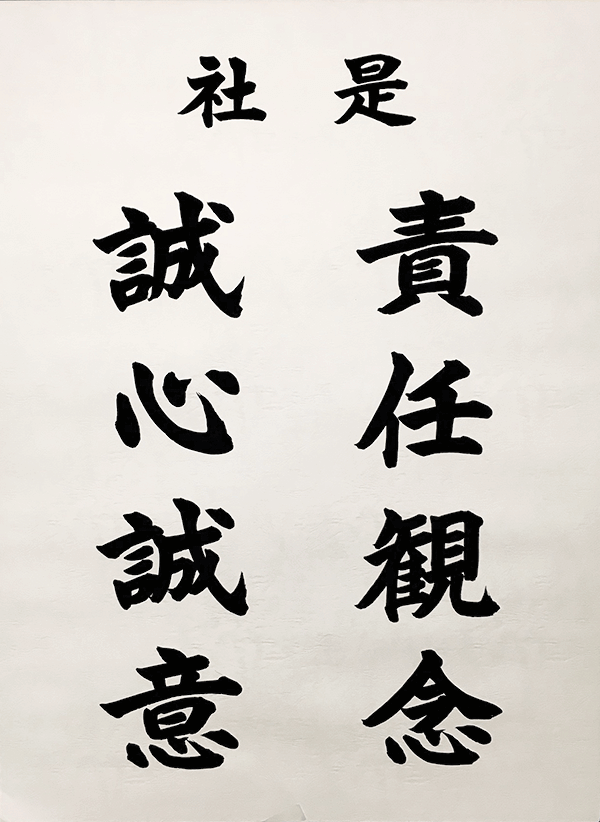 社是
責任観念
誠心誠意